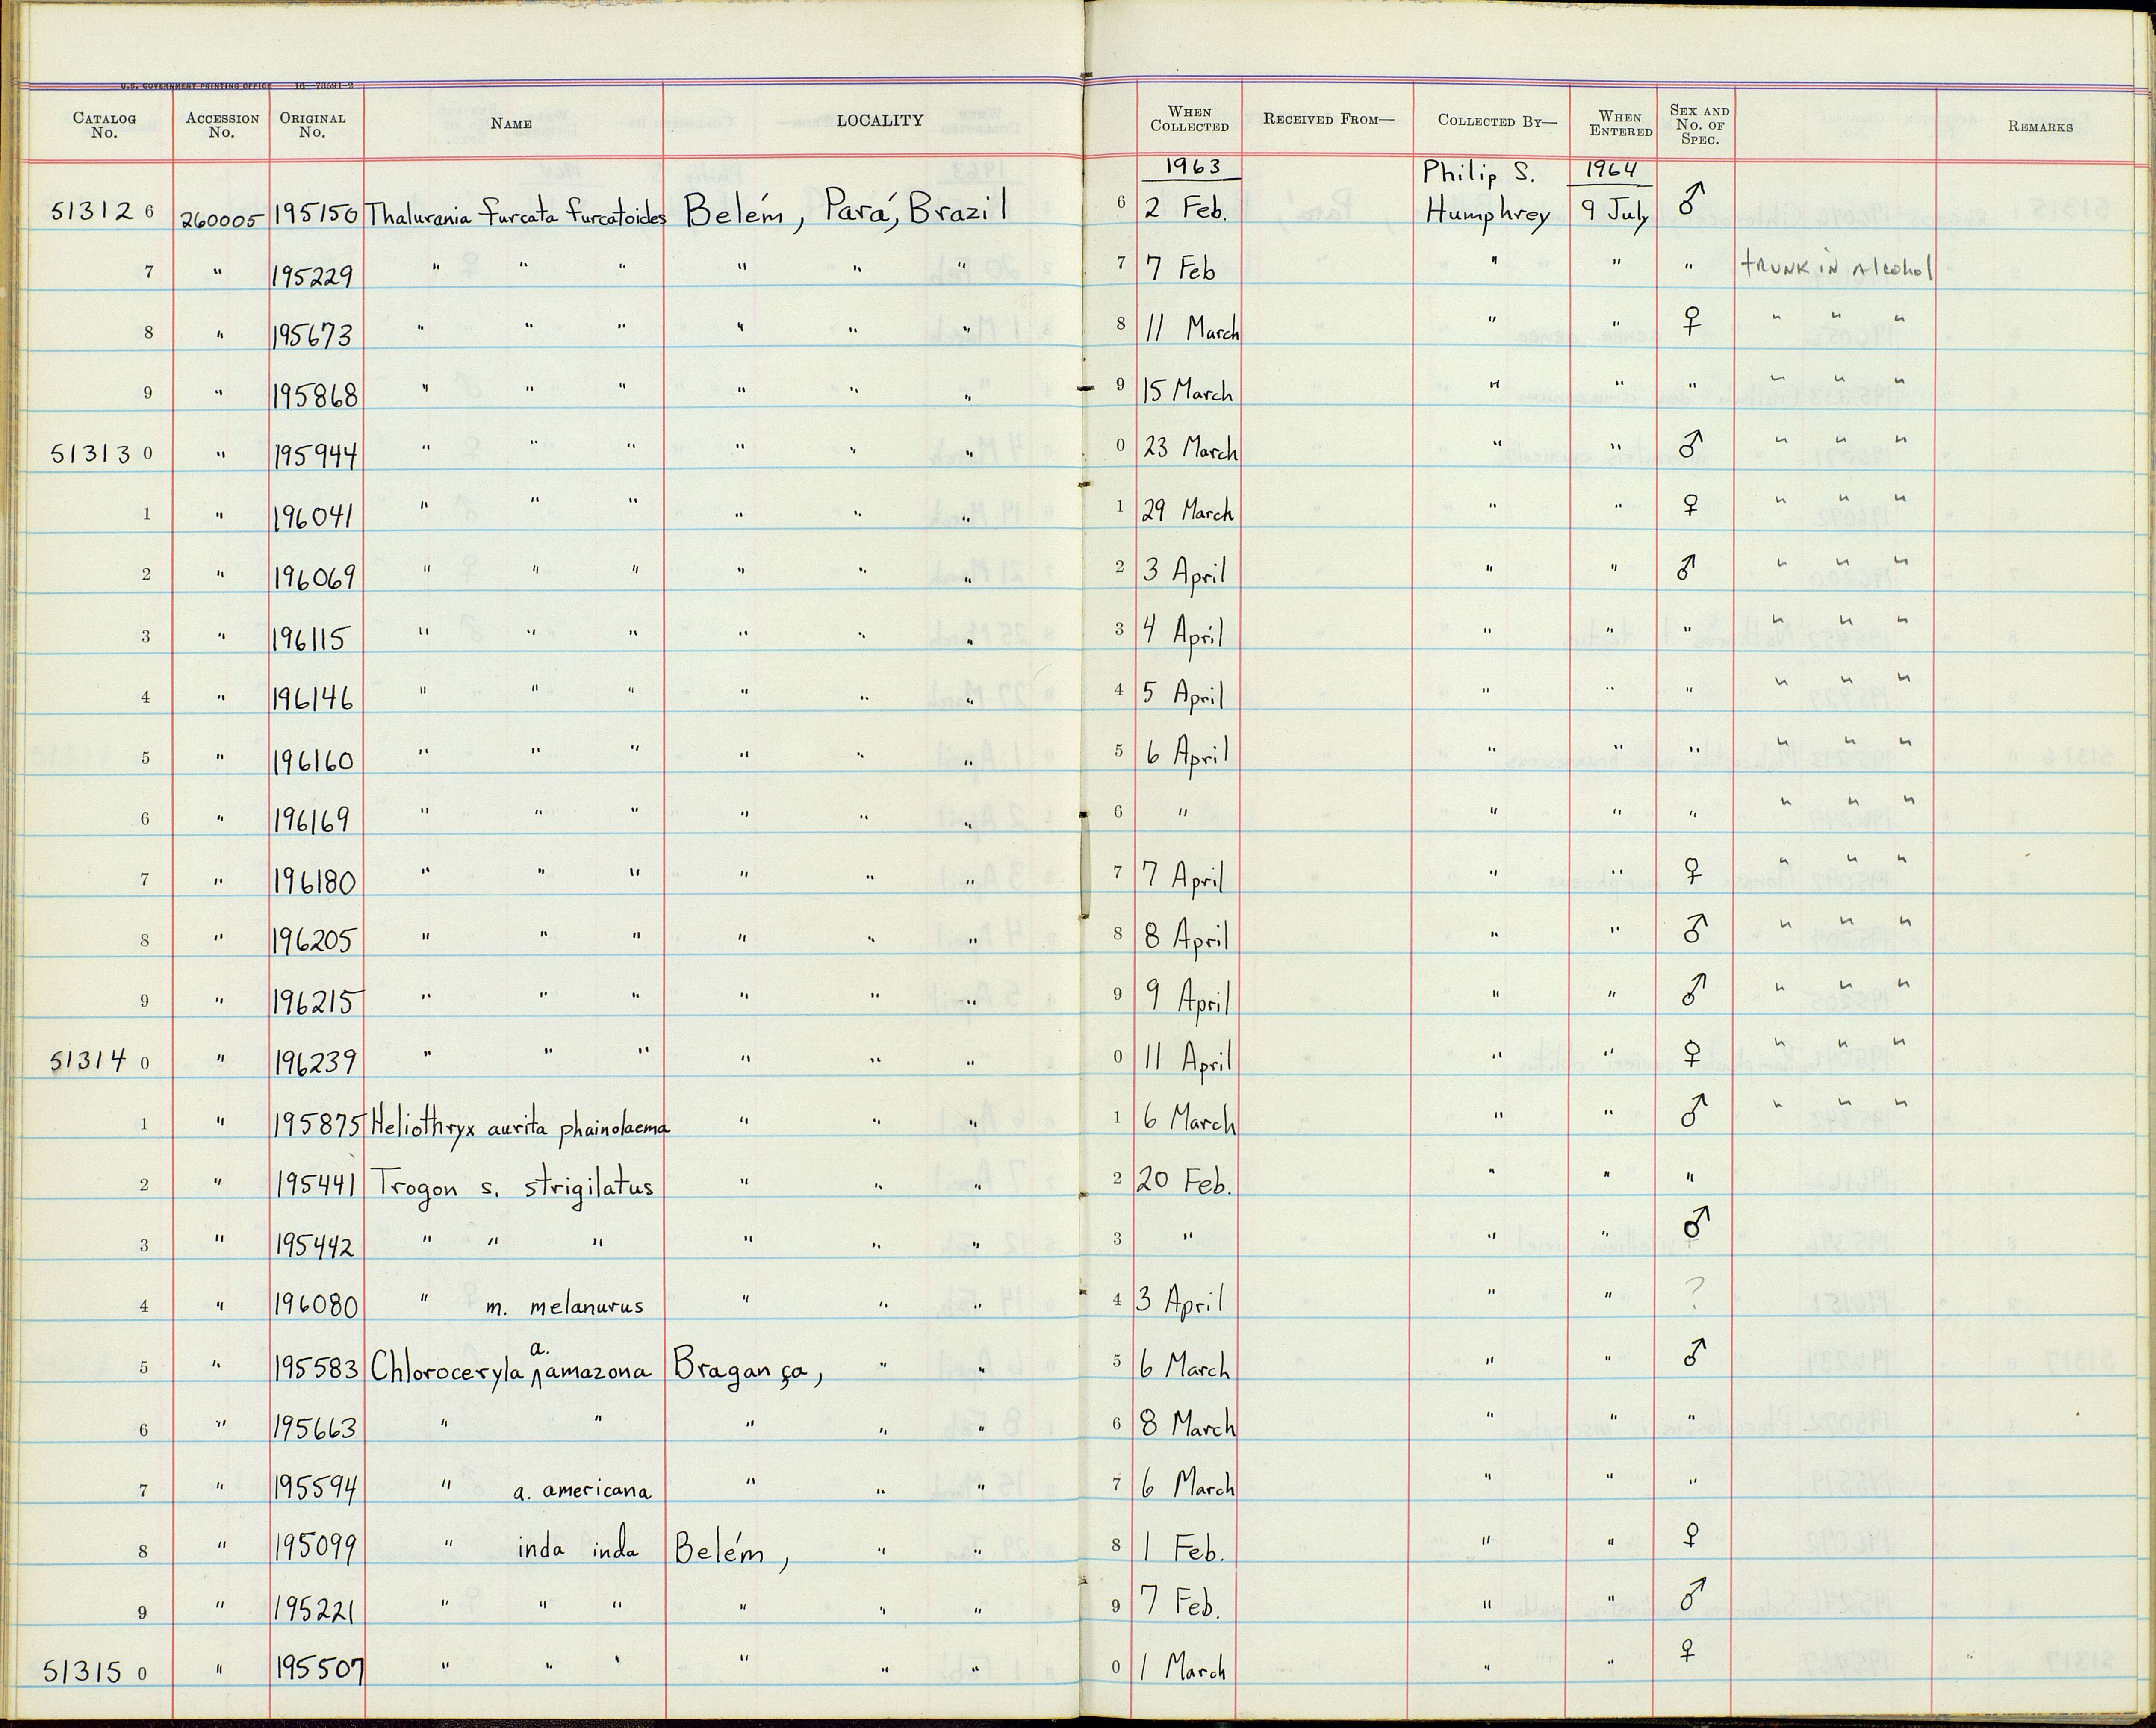 U.S. GOVERNMENT PRINTING OFFICE 16—73591-2
CATALOG No. ACCESSION No. ORIGINAL No. NAME LOCALITY WHEN COLLECTED RECEIVED FROM— COLLECTED BY— WHEN ENTERED SEX AND No. OF SPEC. REMARKS
1963 Philip S. 1964
51312 6 260005 195150 Thalurania furcata furcatoides Belém, Pará, Brazil 6 2 Feb. Humphrey 9 July ♂
7 " 195229 " " " " " " 7 7 Feb " " " trunk in alcohol
8 " 195673 " " " " " " 8 11 March " " ♀ " " "
9 " 195868 " " " " " " 9 15 March " " " " " "
51313 0 " 195944 " " " " " " 0 23 March " " ♂ " " "
1 " 196041 " " " " " " 1 29 March " " ♀ " " "
2 " 196069 " " " " " " 2 3 April " " ♂ " " "
3 " 196115 " " " " " " 3 4 April " " " " " "
4 " 196146 " " " " " " 4 5 April " " " " " "
5 " 196160 " " " " " " 5 6 April " " " " " "
6 " 196169 " " " " " " 6 " " " " " " "
7 " 196180 " " " " " " 7 7 April " " ♀ " " "
8 " 196205 " " " " " " 8 8 April " " ♂ " " "
9 " 196215 " " " " " " 9 9 April " " ♂ " " "
51314 0 " 196239 " " " " " " 0 11 April " " ♀ " " "
1 " 195875 Heliothryx aurita phainolaema " " " 1 6 March " " ♂ " " "
2 " 195441 Trogon s. strigilatus " " " 2 20 Feb. " " "
3 " 195442 " " " " " " 3 " " " ♂
4 " 196080 " m. melanurus " " " 4 3 April " " ?
5 " 195583 Chloroceryla a. amazona Bragança, " " 5 6 March " " ♂
6 " 195663 " " " " " 6 8 March " " "
7 " 195594 " a. americana " " " 7 6 March " " "
8 " 195099 " inda inda Belém, " " 8 1 Feb. " " ♀
9 " 195221 " " " " " " 9 7 Feb. " " ♂
51315 0 " 195507 " " " " " " 0 1 March " " ♀